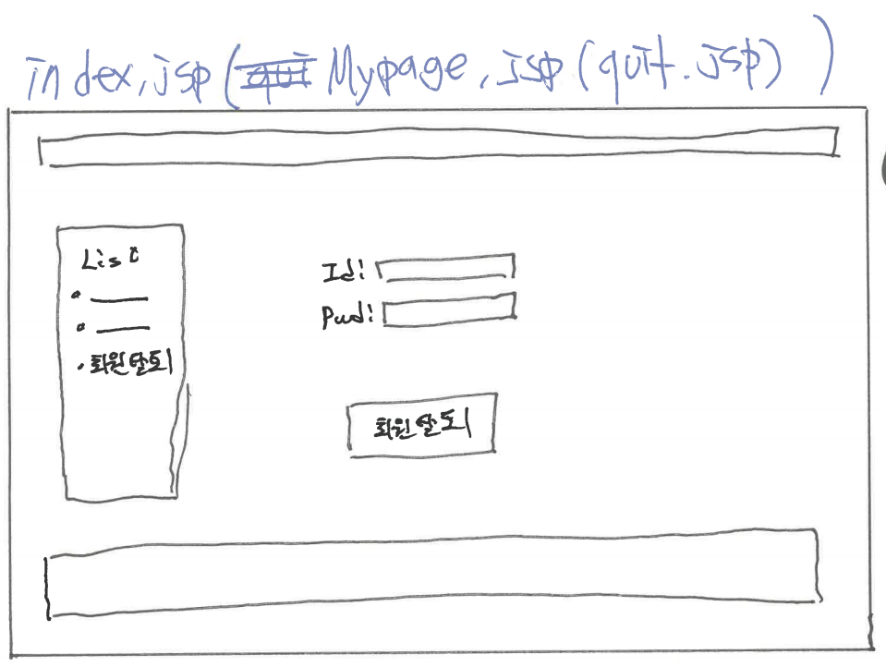 index.jsp (Mypage.jsp (quit.jsp))
List
Id:
Pwd:
회원탈퇴
회원탈퇴